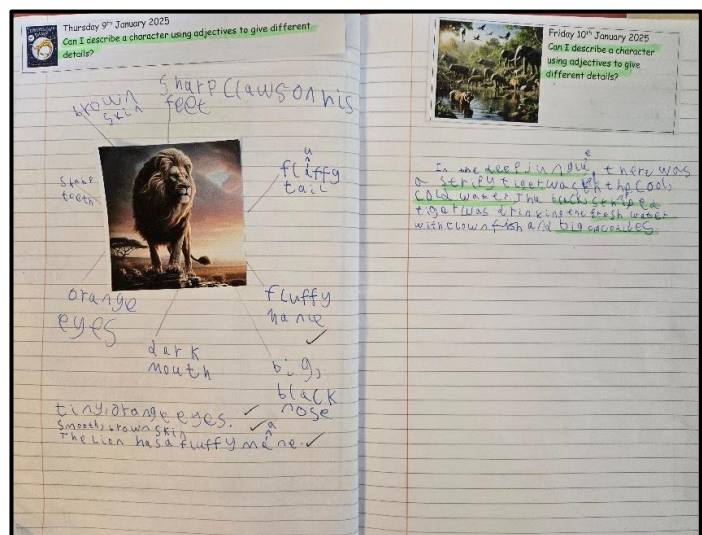 Thursday 9th January 2025
Can I describe a character using adjectives to give different
details?
brown
skin
sharp claws on his
feet
fluffy
tail
sharp
teeth
orange
eyes
dark
mouth
fluffy
big,
black
nose
tiny, orange eyes.
smooth, brown skin
The Lion has a fluffy mane.
Friday 10th January 2025
Can I describe a character
using adjectives to give
different details?
In the deep jungle, there was
a stripy tiger the cool,
cold water. The black striped
tiger was drinking the fresh water
with clown fish and big